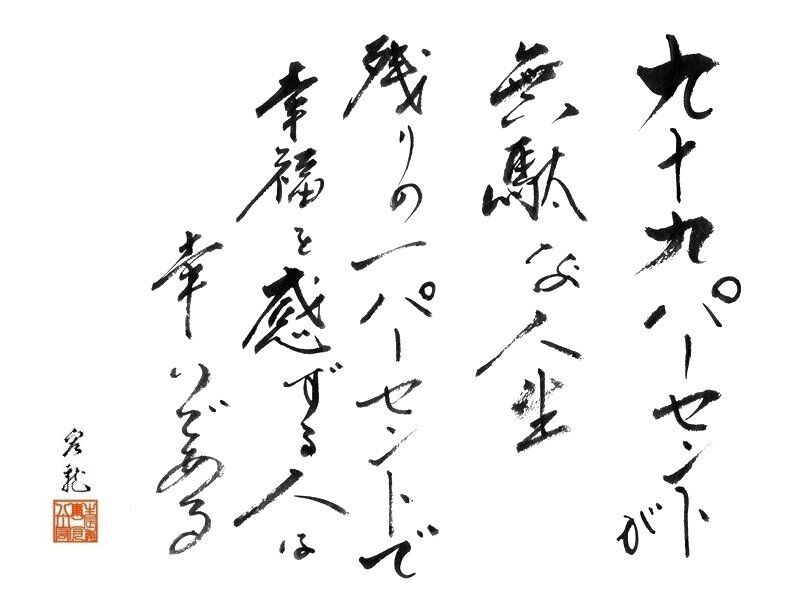 九十九パーセントが
無駄な人生
残りの一パーセントで
幸福を感ずる人は
幸いである